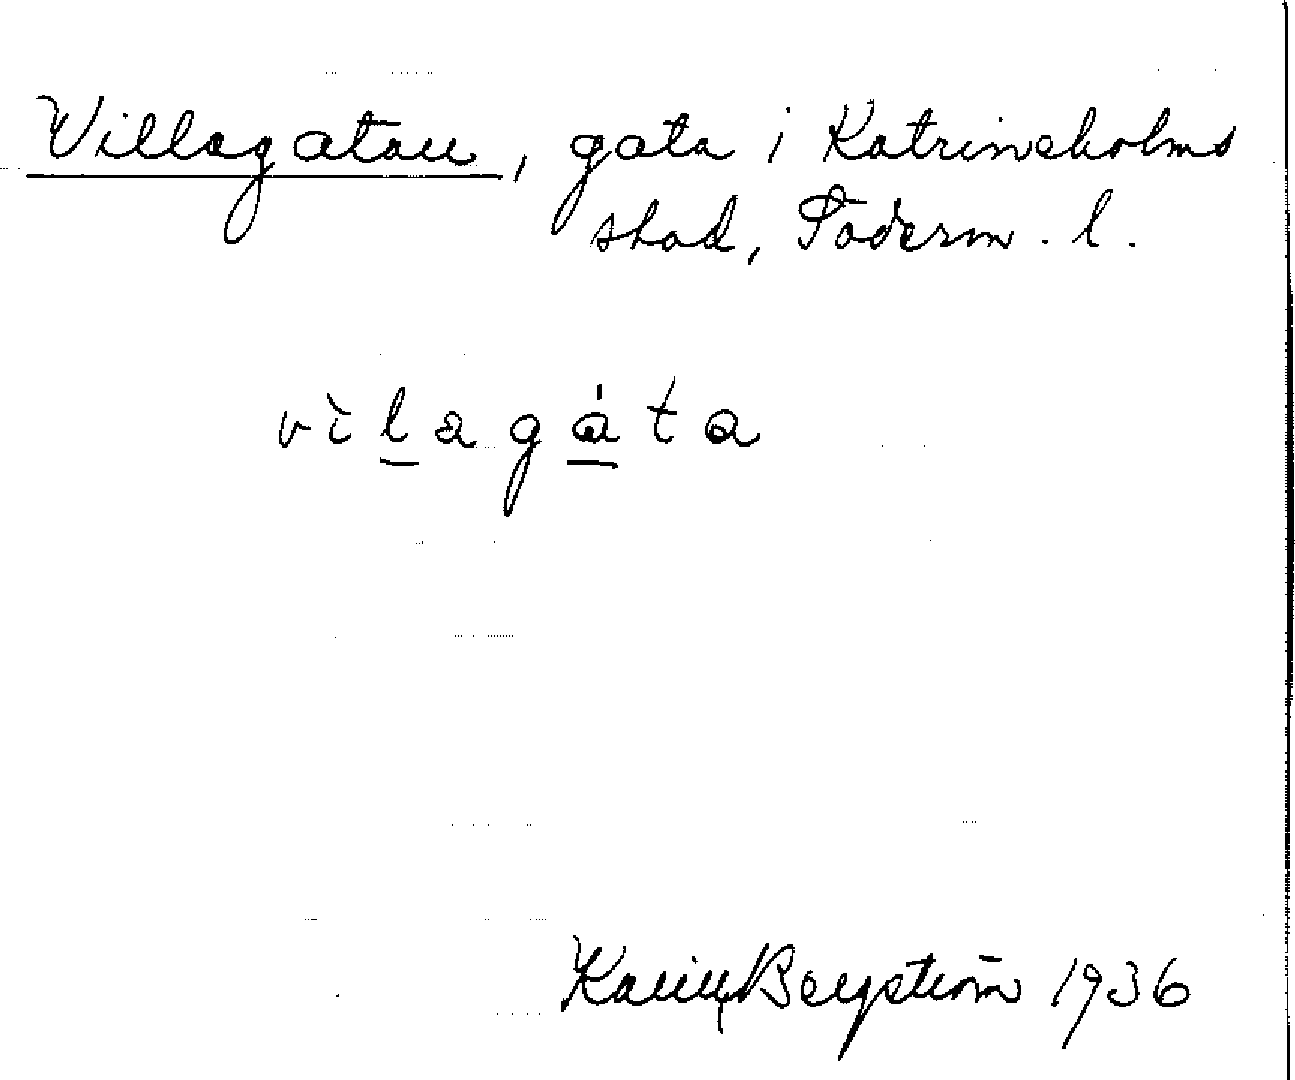 Villagatan, gata i Katrineholms
stad, Söderm. l.
vìlagáta
Karin Bergström 1936